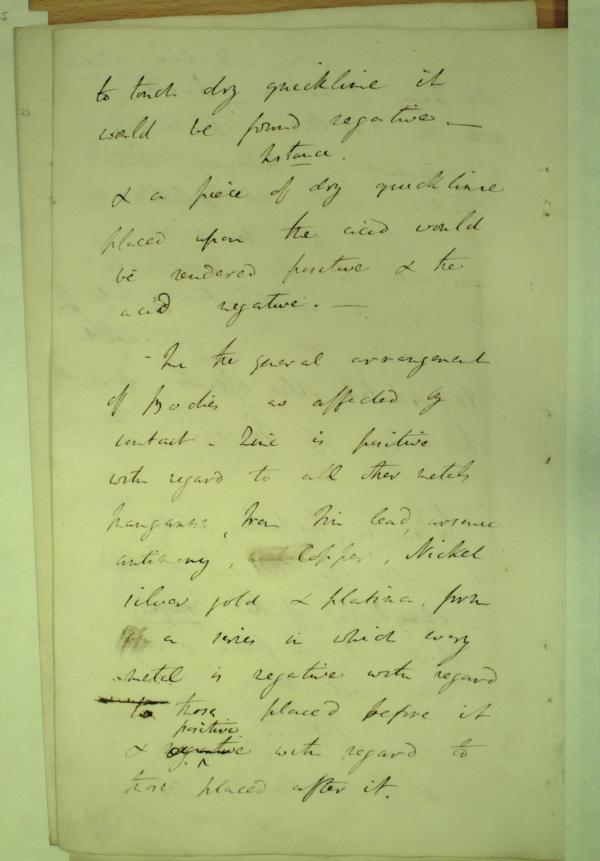 to touch dry quicklime it
would be found negative. —
Instance.
& a piece of dry quicklime
placed upon the acid would
be rendered positive & the
acid negative. —
- In the general arrangement
of Bodies as affected by
contact - Zinc is positive
with regard to all other metals
Manganese, Iron Tin lead, arsenic
antimony, Copper, Nickel
silver gold & platina. form
a series in which every
metal is negative with regard
to those placed before it
positive
& negative with regard to
those placed after it.